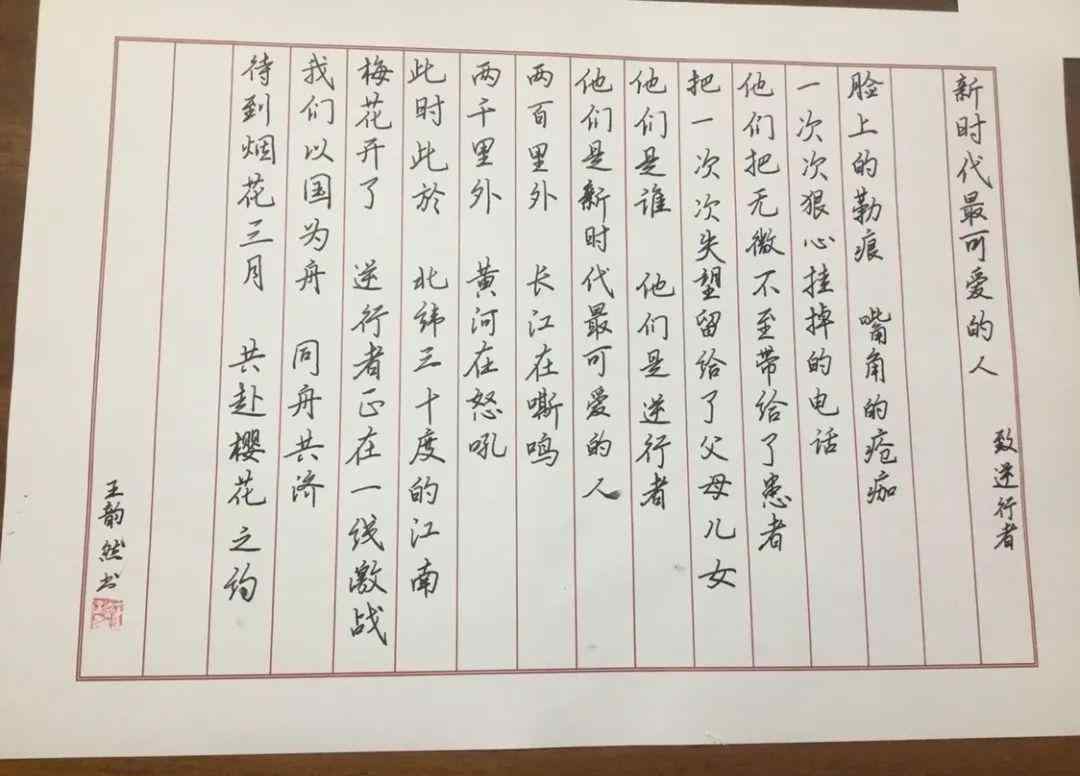 新时代最可爱的人
致逆行者
脸上的勒痕 嘴角的疮痂
一次次狠心挂掉的电话
他们把无微不至带给了患者
把一次次失望留给了父母儿女
他们是谁 他们是逆行者
他们是新时代最可爱的人
两百里外 长江在嘶鸣
两千里外 黄河在怒吼
此时此於 北纬三十度的江南
梅花开了 逆行者正在一线激战
我们以国为舟 同舟共济
待到烟花三月 共赴樱花之约
王韵然书